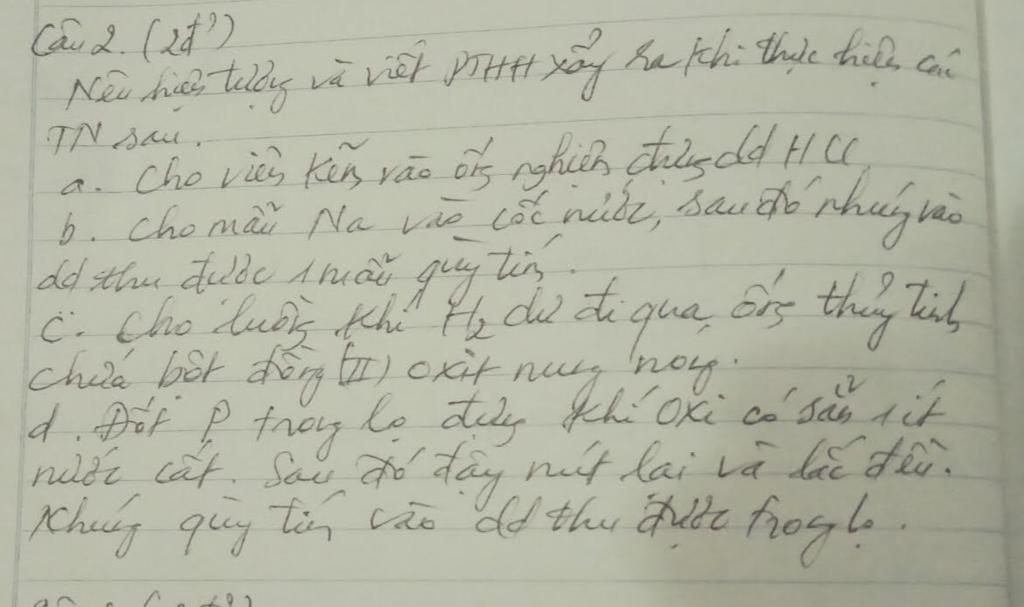 Câu 2. (2đ')
Nêu hiện tượng và viết PTHH xảy ra khi thực hiện các
TN sau.
a. Cho viên kẽm vào ống nghiệm đựng dd HCl
b. Cho mẫu Na vào cốc nước, sau đó nhúng vào
dd thu được 1 mẫu quỳ tím.
c. Cho luồng khí H2 dư đi qua ống thủy tinh
chứa bột đồng (II) oxit nung nóng.
d. Đốt P trong lọ đựng khí oxi có sẵn 1 ít
nước cất. Sau đó đậy nút lại và lắc đều.
Nhúng quỳ tím vào dd thu được trong lọ.